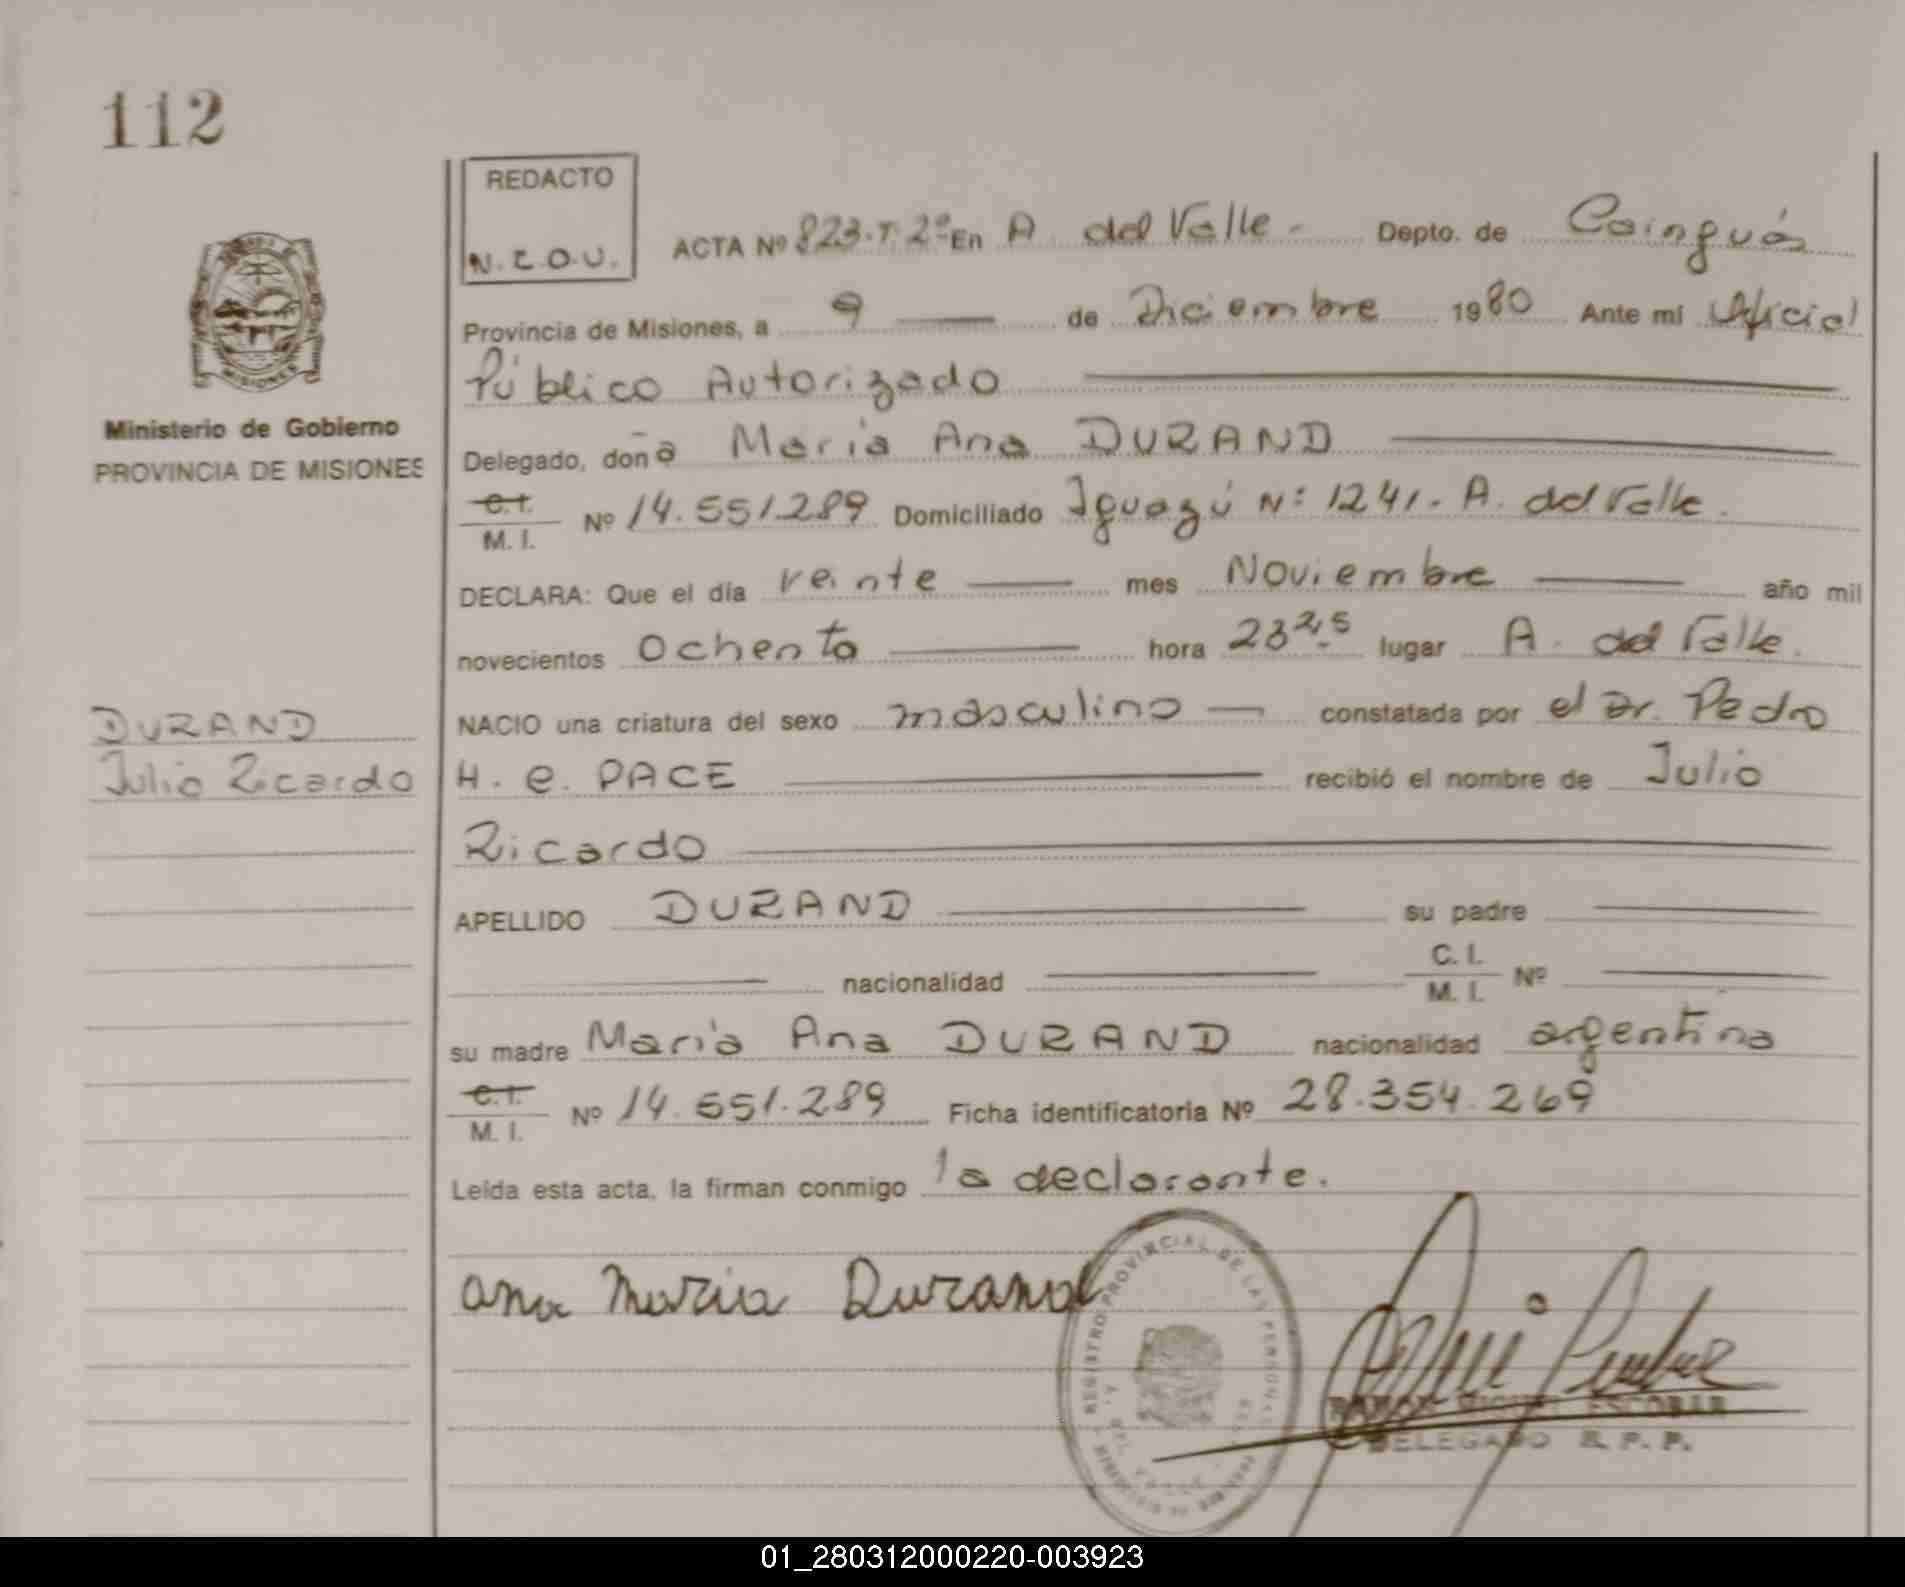 112
REDACTO
N.E.O.U.
ACTA Nº 823.T.2º En A. del Valle.- Depto. de Cainguás
Provincia de Misiones, a 9 de Diciembre 1980 Ante mí Oficial
Público Autorizado
Delegado, doña María Ana DURAND
C.I.
M. I. Nº 14.551.289 Domiciliado Iguazú Nº: 1241. A. del Valle.
DECLARA: Que el día veinte mes Noviembre año mil
novecientos Ochenta hora 23 25 lugar A. del Valle.
NACIO una criatura del sexo masculino constatada por el Dr. Pedro
H. e. PACE recibió el nombre de Julio
Ricardo
APELLIDO DURAND su padre
nacionalidad C. I.
M. I. Nº
su madre María Ana DURAND nacionalidad argentina
C.I.
M. I. Nº 14.551.289 Ficha identificatoria Nº 28.354.269
Leída esta acta, la firman conmigo la declarante.
Ana Maria Durand
REGISTRO PROVINCIAL DE LAS PERSONAS
RAMON MIGUEL ESCOBAR
DELEGADO R. P. P.
MISIONES
Ministerio de Gobierno
PROVINCIA DE MISIONES
DURAND
Julio Ricardo
01_280312000220-003923